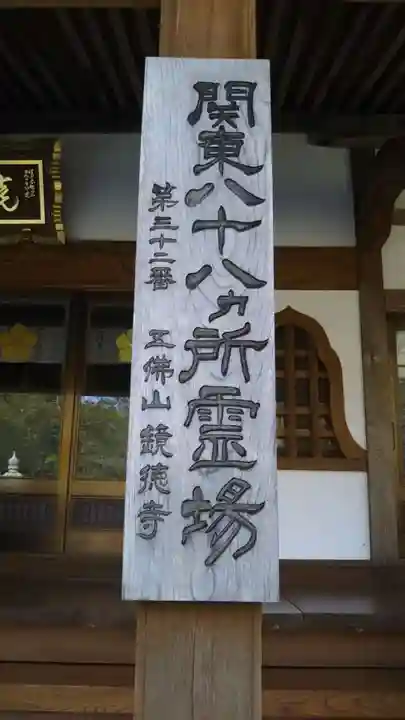 関東八十八ヵ所霊場
第三十二番 五佛山 鏡徳寺